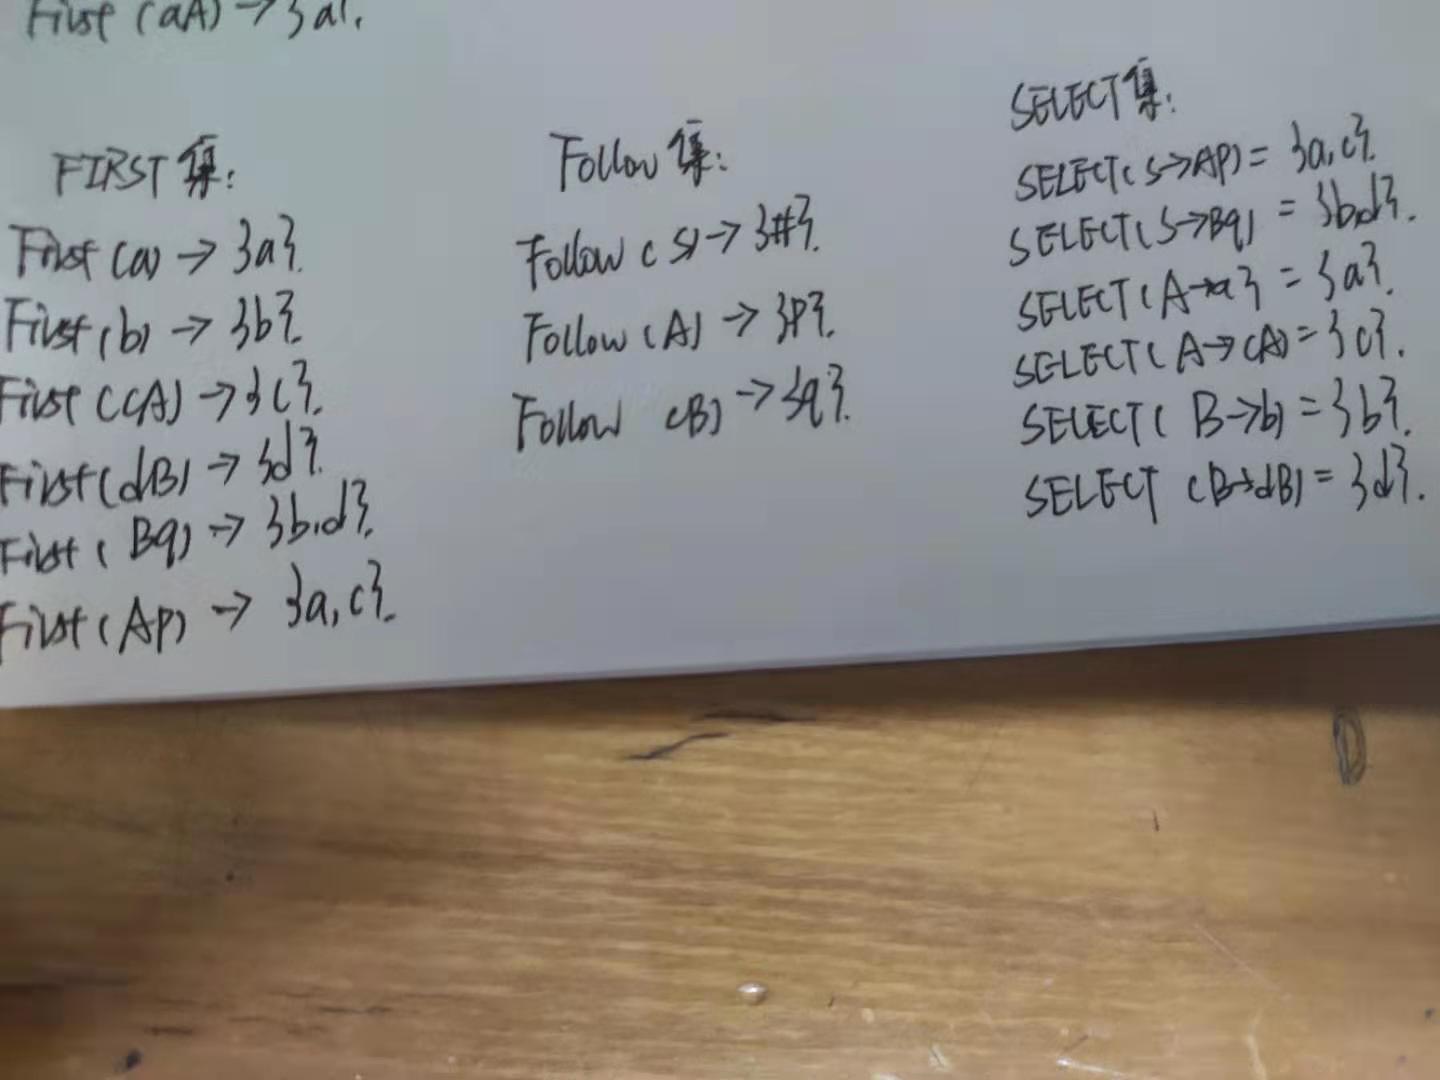 First (aA) → {a}.
FIRST集:
First (a) → {a}.
First (b) → {b}.
First (cA) → {c}.
First (dB) → {d}.
First (Bq) → {b,d}.
First (Ap) → {a,c}.
Follow集:
Follow (S) → {#}.
Follow (A) → {p}.
Follow (B) → {q}.
SELECT集:
SELECT(S→Ap) = {a,c}.
SELECT(S→Bq) = {b,d}.
SELECT(A→a} = {a}.
SELECT(A→cA) = {c}.
SELECT(B→b) = {b}.
SELECT (B→dB) = {d}.